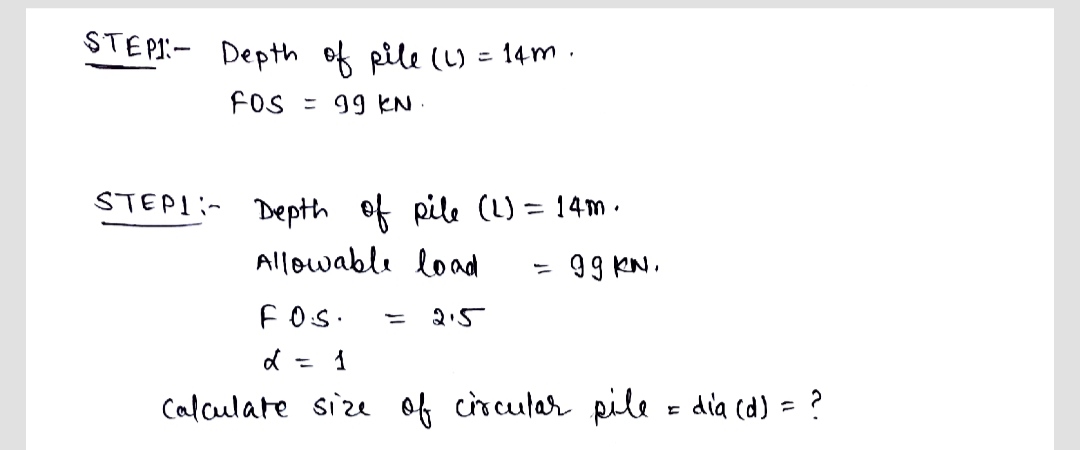 STEP1:- Depth of pile (L) = 14m.
FOS = 99 KN.
STEP1:- Depth of pile (L) = 14m.
Allowable load = 99 KN.
F O.S. = 2.5
α = 1
Calculate size of circular pile = dia (d) = ?